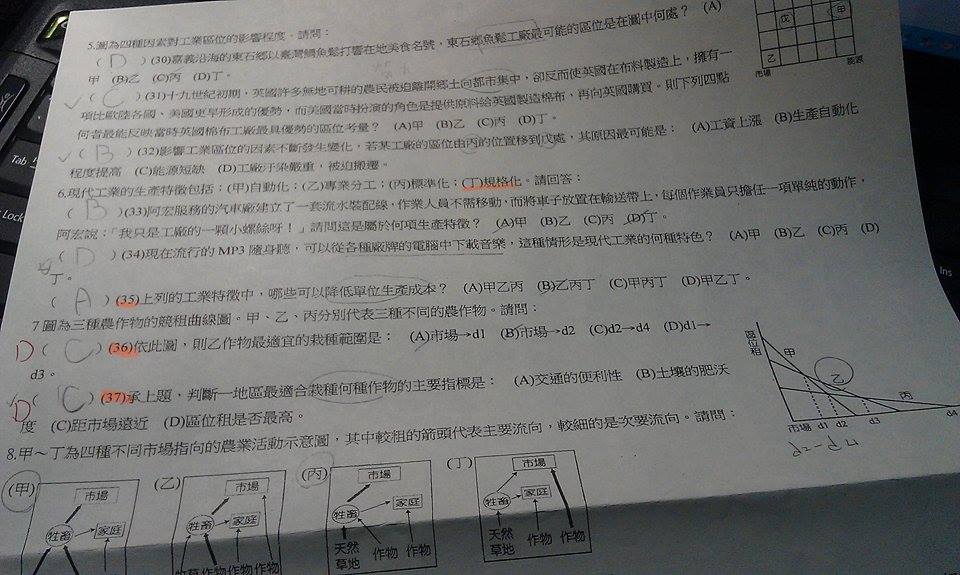 5.圖為四種因素對工業區位的影響程度。請問：
( D ) (30)嘉義沿海的東石鄉以臺灣鯛魚鬆打響在地美食名號，東石鄉魚鬆工廠最可能的區位是在圖中何處？ (A)
甲 (B)乙 (C)丙 (D)丁。
( C ) (31)十九世紀初期，英國許多無地可耕的農民被迫離開鄉土向都市集中，卻反而使英國在布料製造上，擁有一
項比歐陸各國、美國更早形成的優勢，而美國當時扮演的角色是提供原料給英國製造棉布，再向英國購買，則下列四點
何者最能反映當時英國棉布工廠最具優勢的區位考量？ (A)甲 (B)乙 (C)丙 (D)丁。
( B ) (32)影響工業區位的因素不斷發生變化，若某工廠的區位由丙的位置移到戊處，其原因最可能是： (A)工資上漲 (B)生產自動化
程度提高 (C)能源短缺 (D)工廠汙染嚴重，被迫搬遷。
6.現代工業的生產特徵包括：(甲)自動化；(乙)專業分工；(丙)標準化；(丁)規格化。請回答：
( B ) (33)阿宏服務的汽車廠建立了一套流水裝配線，作業人員不需移動，而將車子放置在輸送帶上，每個作業員只擔任一項單純的動作，
阿宏說：「我只是工廠的一顆小螺絲呀！」請問這是屬於何項生產特徵？ (A)甲 (B)乙 (C)丙 (D)丁。
( D ) (34)現在流行的 MP3 隨身聽，可以從各種廠牌的電腦中下載音樂，這種情形是現代工業的何種特色？ (A)甲 (B)乙 (C)丙 (D)
丁。
( A ) (35)上列的工業特徵中，哪些可以降低單位生產成本？ (A)甲乙丙 (B)乙丙丁 (C)甲丙丁 (D)甲乙丁。
7 圖為三種農作物的競租曲線圖。甲、乙、丙分別代表三種不同的農作物。請問：
D ( C ) (36)依此圖，則乙作物最適宜的栽種範圍是： (A)市場→d1 (B)市場→d2 (C)d2→d4 (D)d1→
d3。
D ( C ) (37)承上題，判斷一地區最適合栽種何種作物的主要指標是： (A)交通的便利性 (B)土壤的肥沃
度 (C)距市場遠近 (D)區位租是否最高。
8.甲～丁為四種不同市場指向的農業活動示意圖，其中較粗的箭頭代表主要流向，較細的是次要流向。請問：
戊 甲
乙
市場 能源
區位租
甲
乙
丙
市場 d1 d2 d3 d4
d2-d4
(甲) 市場 牲畜 家庭
(乙) 市場 牲畜 家庭 作物 作物 作物
(丙) 市場 牲畜 家庭 天然草地 作物 作物
(丁) 市場 牲畜 家庭 天然草地 作物 作物
Tab
Lock
Ins